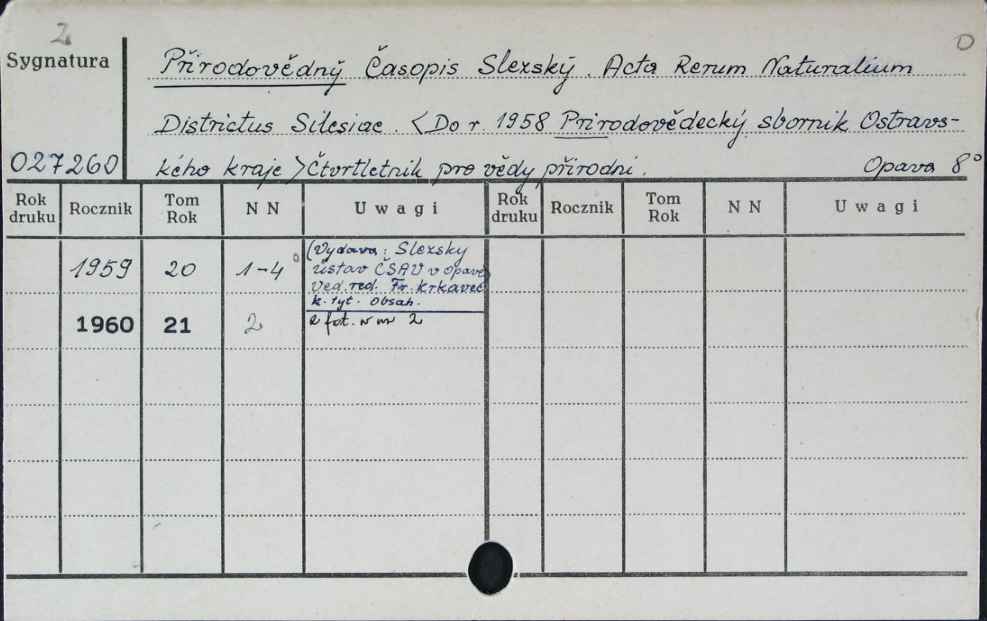 Z
D
Sygnatura
Přírodovědný Časopis Slezský. Acta Rerum Naturalium
Districtus Silesiae. <Do r. 1958 Přírodovědecký sborník Ostravs-
027260
kého kraje> Čtvrtletník pro vědy přírodní. Opava 8°
Rok druku Rocznik Tom Rok NN Uwagi Rok druku Rocznik Tom Rok NN Uwagi
1959 20 1-4
(Vydává: Slezský
ústav ČSAV v Opavě)
Ved. red. Fr. Krkaveč
k. tyt. obsah.
1960 21 2
2 fot. w nr 2